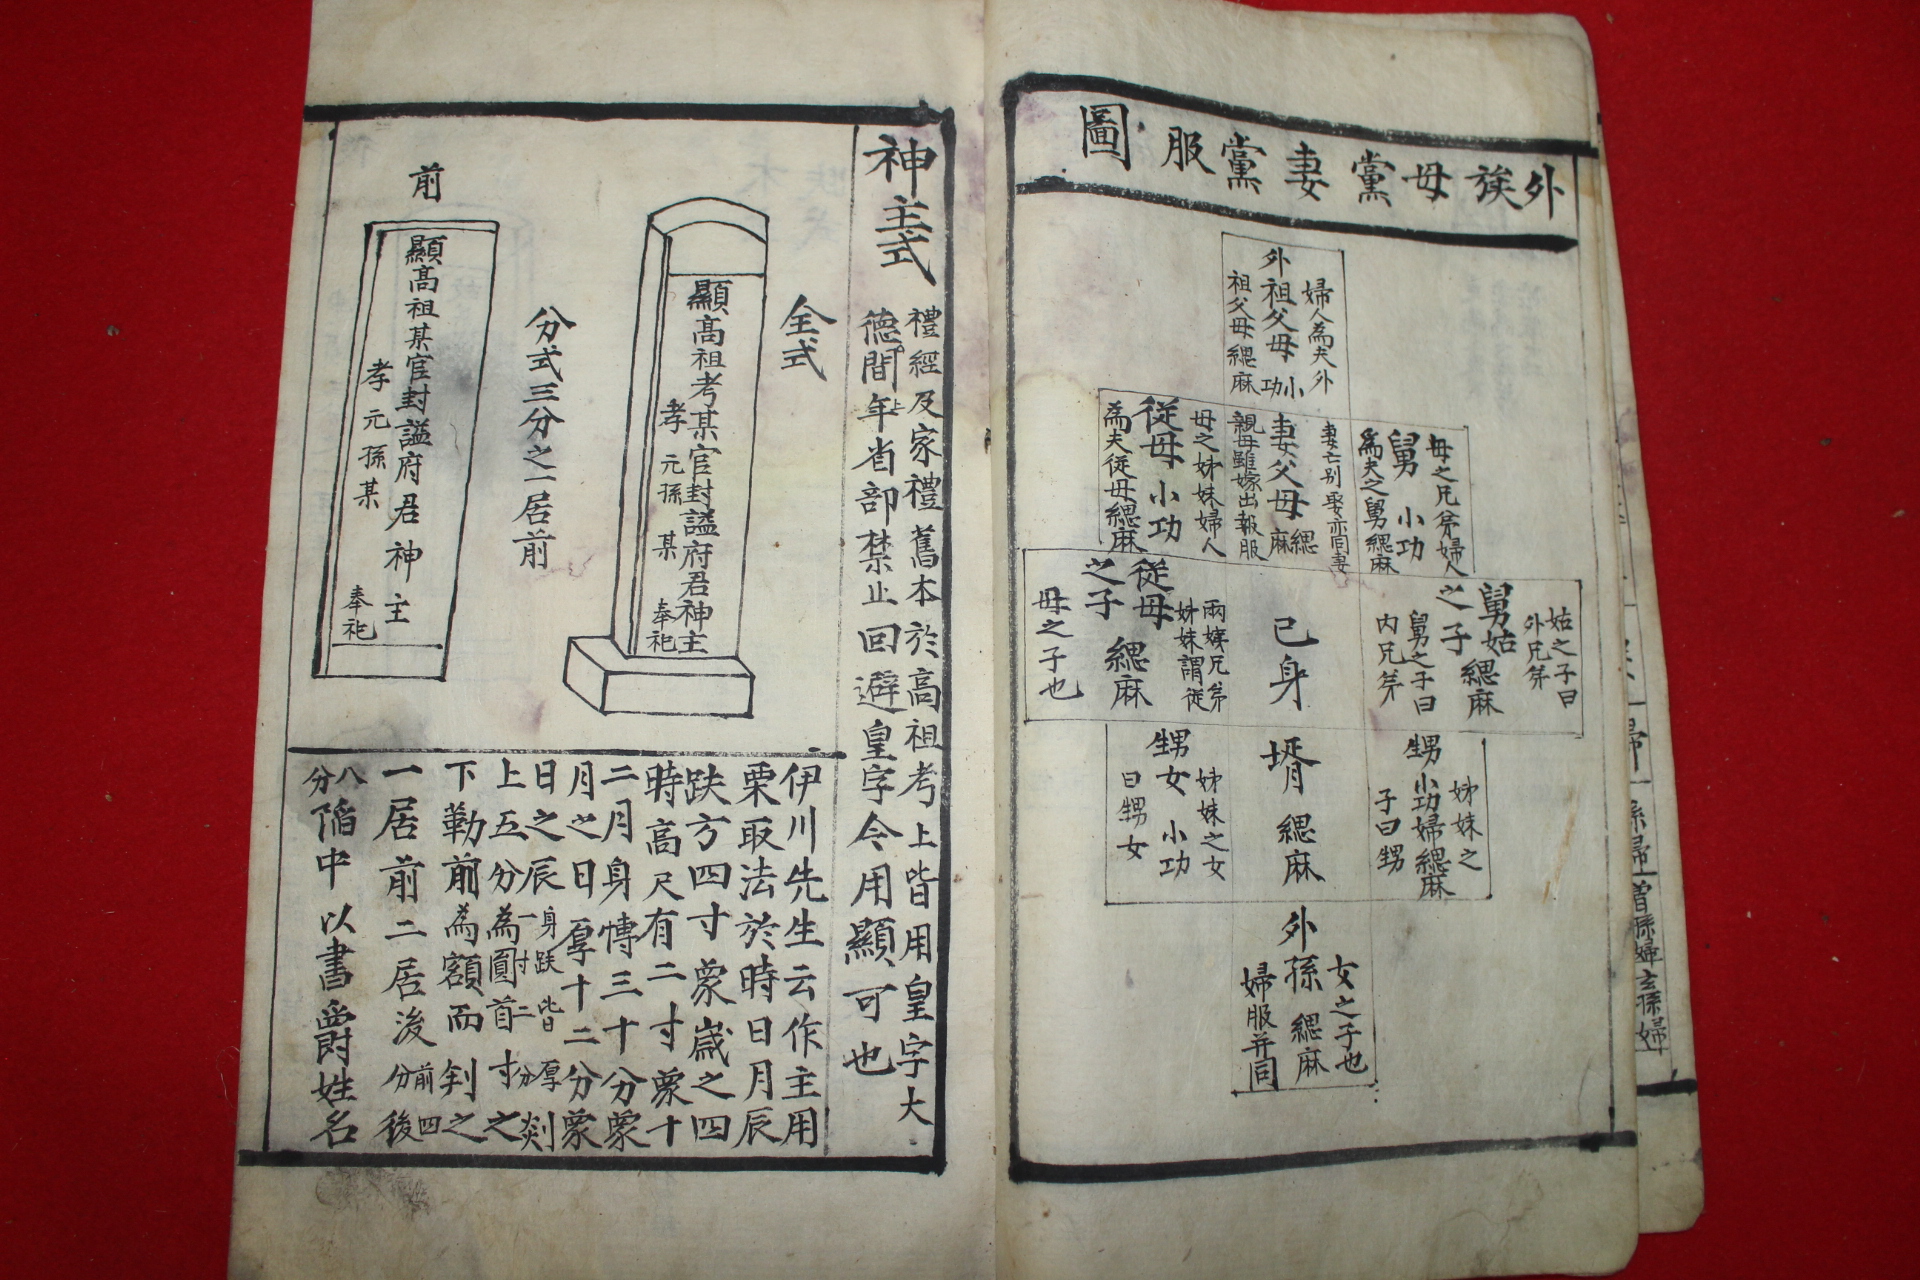 外族母黨妻黨服圖
婦人為夫外
外祖父母小功
祖父母緦麻
母之兄弟婦人
舅小功
為夫之舅緦麻
妻亡別娶亦同妻
妻父母緦麻
親母雖嫁出報服
母之姊妹婦人
從母小功
為夫從母緦麻
姑之子曰
外兄弟
舅姑之子緦麻
舅之子曰
內兄弟
己身
兩姨兄弟
姊妹謂從
從母之子緦麻
母之子也
姊妹之
甥小功婦緦麻
子曰甥
壻緦麻
姊妹之女
甥女小功
曰甥女
女之子也
外孫緦麻
婦服并同
神主式
禮經及家禮舊本於高祖考上皆用皇字大
德間年省部禁止回避皇字令用顯可也
全式
顯高祖考某官封謚府君神主
孝元孫某奉祀
分式三分之一居前
前
顯高祖某官封謚府君神主
孝元孫某奉祀
伊川先生云作主用
栗取法於時日月辰
趺方四寸象歲之四
時高尺有二寸象十
二月身博三十分象
月之日厚十二分象
日之辰身趺皆厚一寸二分剡
上五分為圓首寸之
下勒前為額而判之
一居前二居後前四分後
八分陷中以書爵姓名
孫婦
曾孫婦
玄孫婦